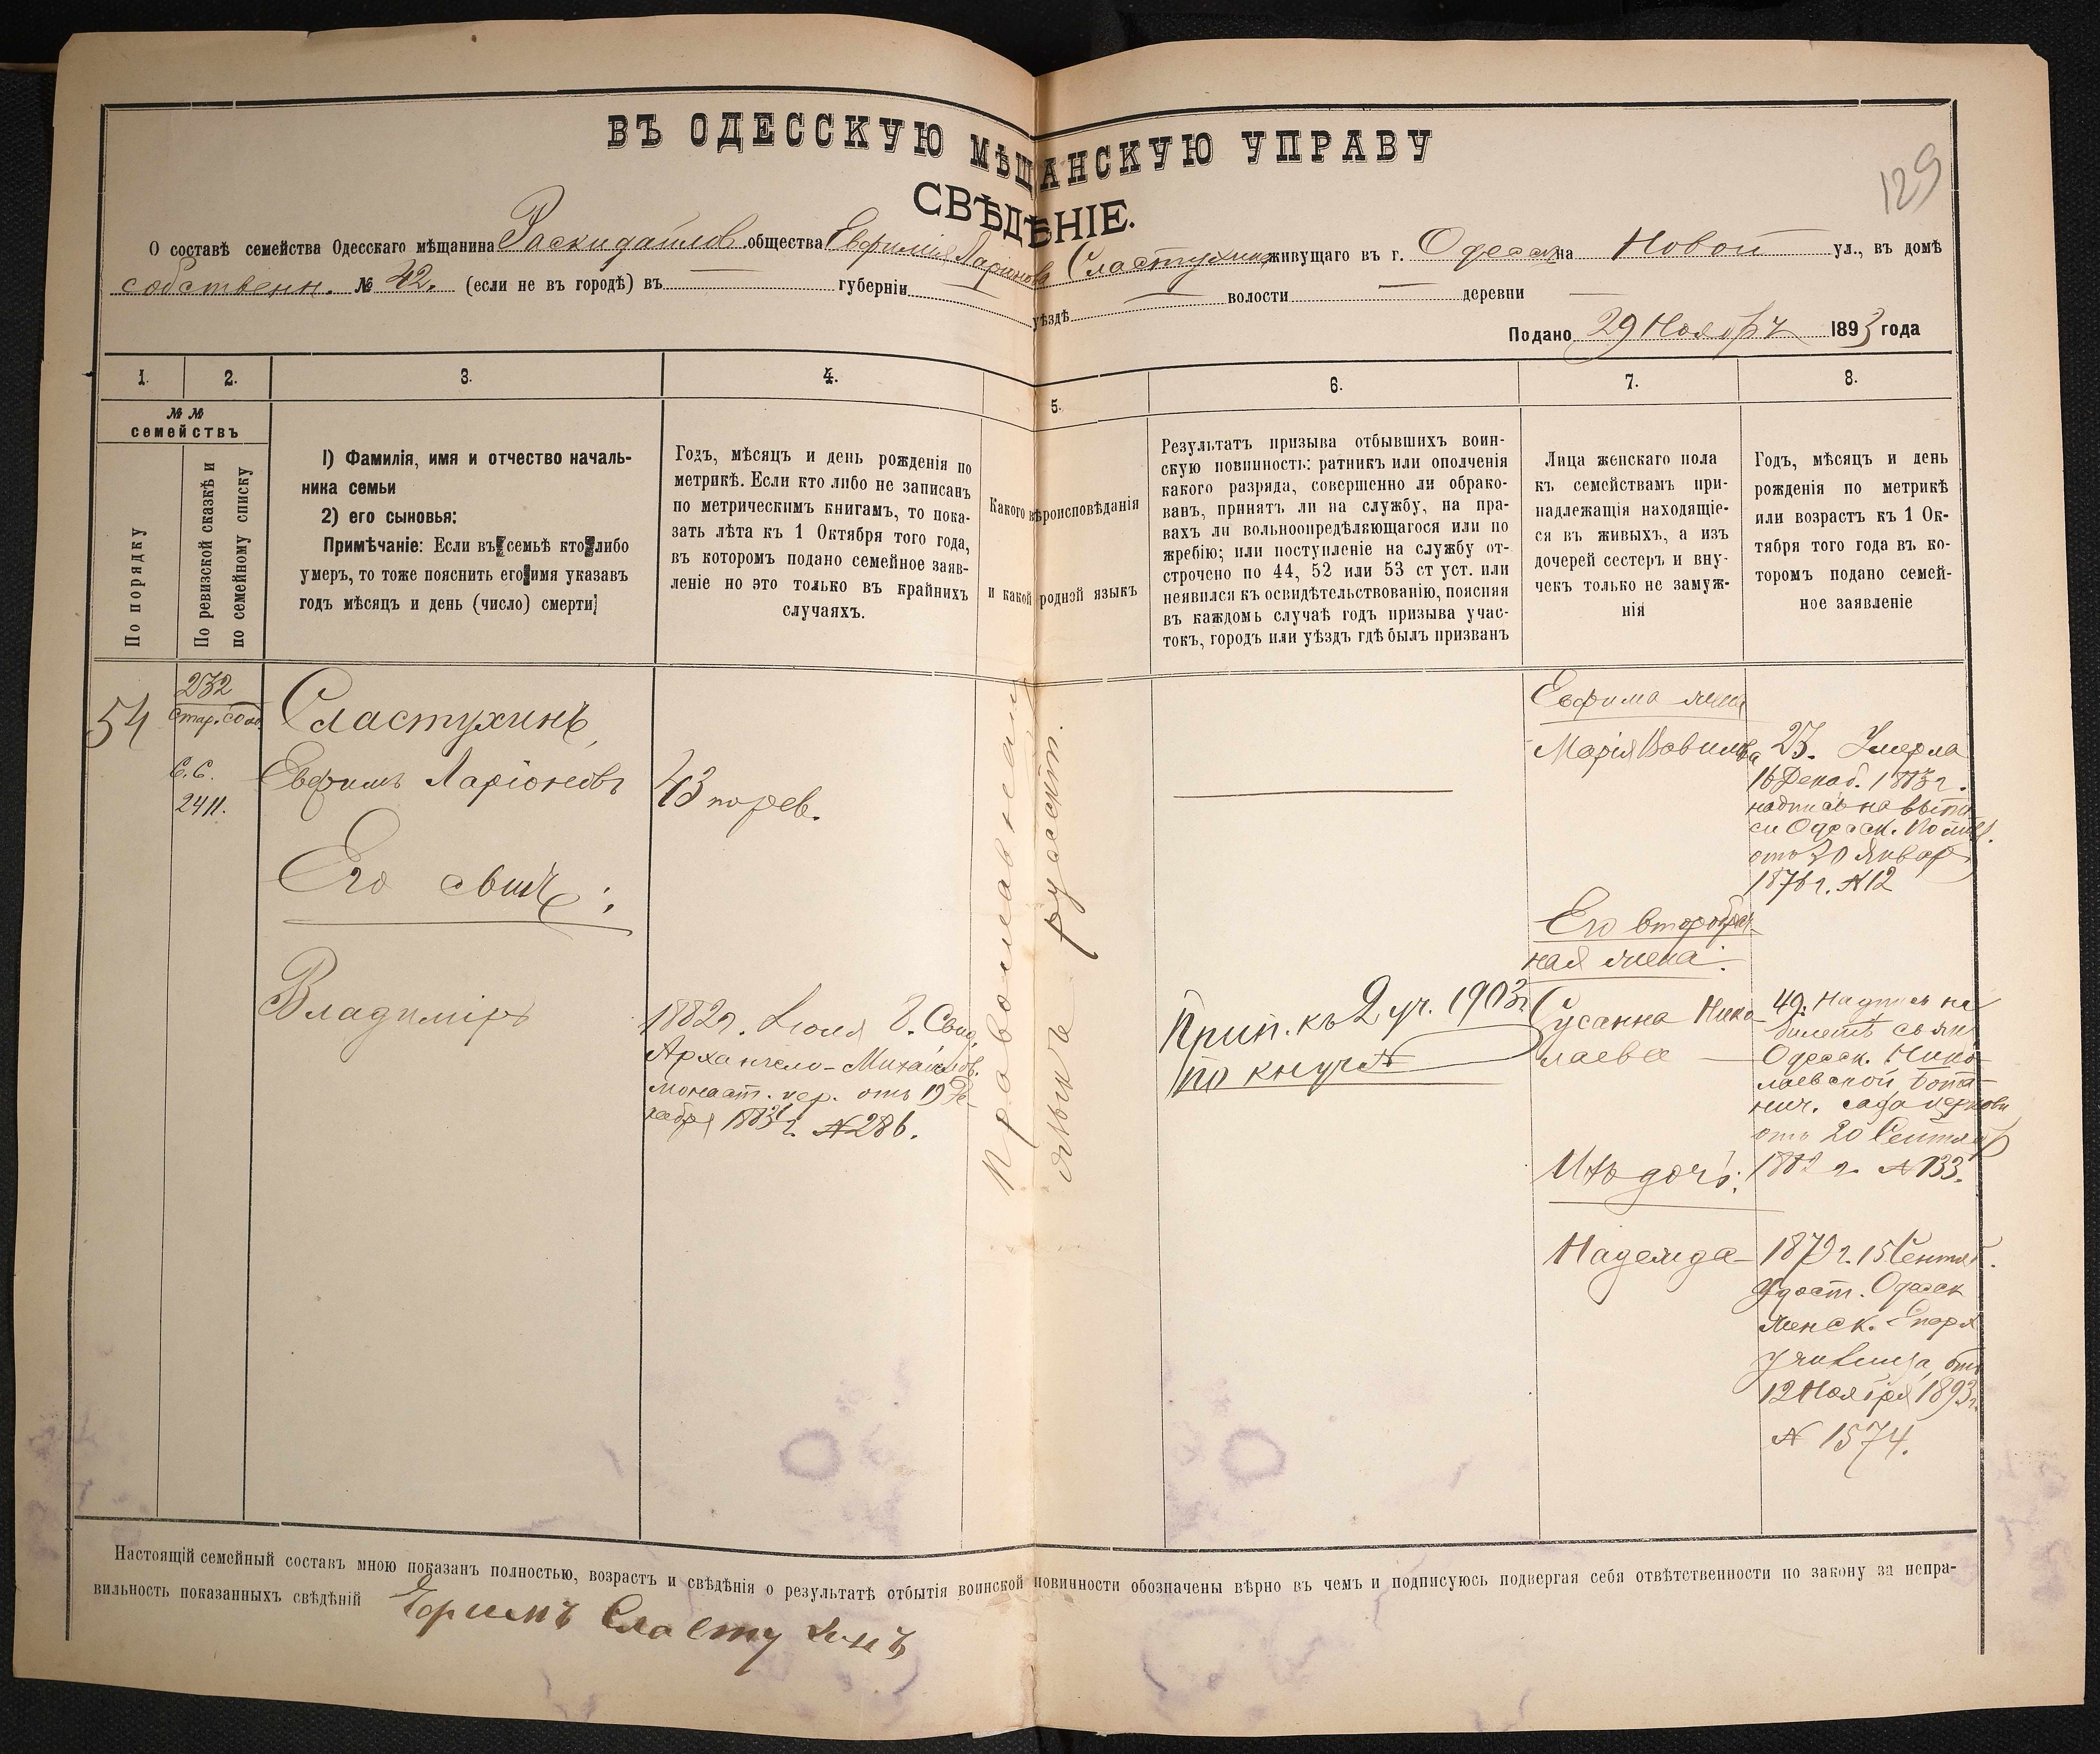 ВЪ ОДЕССКУЮ МѢЩАНСКУЮ УПРАВУ
СВѢДѢНІЕ.
129
О составѣ семейства Одесскаго мѣщанина Раскидайлов. общества Евфимія Ларионова Сластухина живущаго въ г. Одессѣ на Новой ул., въ домѣ
собственн. № 42. (если не въ городѣ) въ — губерніи — уѣздѣ — волости — деревни —
Подано 29 Ноября 1893 года
1. 2. 3. 4. 5. 6. 7. 8.
№ №
семействъ
По порядку
По ревизской сказкѣ и
по семейному списку
1) Фамилія, имя и отчество началь-
ника семьи
2) его сыновья:
Примѣчаніе: Если въ семьѣ кто либо
умеръ, то тоже пояснить его имя указавъ
годъ мѣсяцъ и день (число) смерти
Годъ, мѣсяцъ и день рожденія по
метрикѣ. Если кто либо не записанъ
по метрическимъ книгамъ, то пока-
зать лѣта къ 1 Октября того года,
въ которомъ подано семейное заяв-
леніе но это только въ крайнихъ
случаяхъ.
Какого вѣроисповѣданія
и какой родной языкъ
Результатъ призыва отбывшихъ воин-
скую повинность: ратникъ или ополченія
какого разряда, совершенно ли обрако-
ванъ, принятъ ли на службу, на пра-
вахъ ли вольноопредѣляющагося или по
жребію; или поступленіе на службу от-
строчено по 44, 52 или 53 ст уст. или
неявился къ освидѣтельствованію, поясняя
въ каждомъ случаѣ годъ призыва учас-
токъ, городъ или уѣздъ гдѣ былъ призванъ
Лица женскаго пола
къ семействамъ при-
надлежащія находящіе-
ся въ живыхъ, а изъ
дочерей сестеръ и вну-
чекъ только не замуж-
нія
Годъ, мѣсяцъ и день
рожденія по метрикѣ
или возрастъ къ 1 Ок-
тября того года въ ко-
торомъ подано семей-
ное заявленіе
54
232
С. С.
2411.
Сластухинъ,
Евфимъ Ларіоновъ
Его сынъ:
Владиміръ
43 по рев.
1882 г. Іюля 8. Свид.
Архангело-Михайлов.
монаст. цер. отъ 19 Де-
кабря 1883 г. № 286.
Православная
языкъ русскій.
Прип. къ 2 уч. 1903 г.
по кн уч №
Евфима жена
Марія Вавилова
Его второбрач-
ная жена:
Сусанна Нико-
лаева —
Ихъ дочь:
Надежда —
23. Умерла
16 Декаб. 1873 г.
надпись на выпи-
си Одесск. Полиц.
отъ 30 Января
1876 г. № 12
49. Надпись на
билетѣ свящ.
Одесск. Нико-
лаевской Бота-
нич. сада церкви
отъ 20 Сентяб
№ 133.
1879 г. 15 Сентяб.
Удост. Одесск
Женск. Епарх
училища отъ
12 Ноября 1893 г.
№ 1574.
Настоящій семейный составъ мною показанъ полностью, возрастъ и свѣдѣнія о результатѣ отбытія воинской повинности обозначены вѣрно въ чемъ и подписуюсь подвергая себя отвѣтственности по закону за непра-
вильность показанныхъ свѣдѣній Ефимъ Сластухинъ